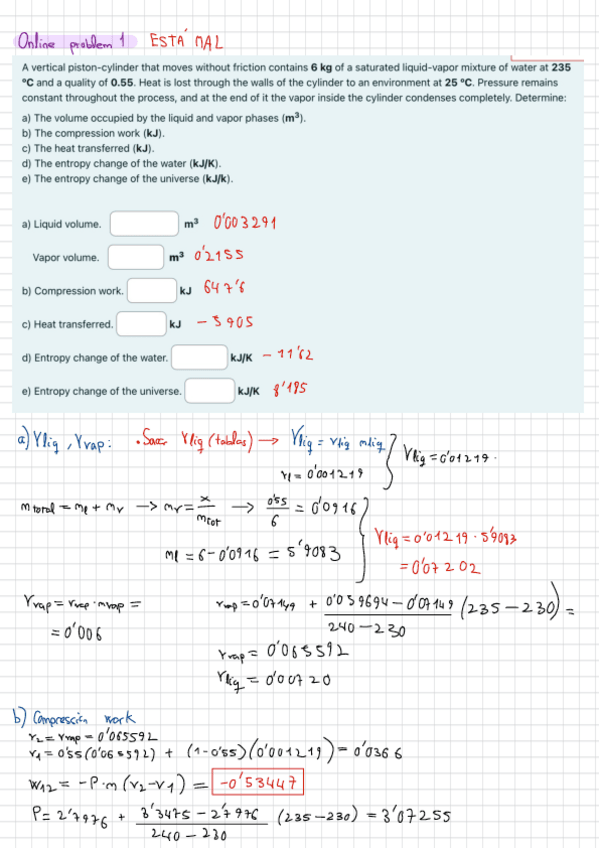 Online problem 1 ESTÁ MAL
A vertical piston-cylinder that moves without friction contains 6 kg of a saturated liquid-vapor mixture of water at 235
°C and a quality of 0.55. Heat is lost through the walls of the cylinder to an environment at 25 °C. Pressure remains
constant throughout the process, and at the end of it the vapor inside the cylinder condenses completely. Determine:
a) The volume occupied by the liquid and vapor phases (m³).
b) The compression work (kJ).
c) The heat transferred (kJ).
d) The entropy change of the water (kJ/K).
e) The entropy change of the universe (kJ/k).
a) Liquid volume. m³ 0'003291
Vapor volume. m³ 0'2155
b) Compression work. kJ 647'6
c) Heat transferred. kJ - 5905
d) Entropy change of the water. kJ/K - 11'62
e) Entropy change of the universe. kJ/K 8'185
a) Vliq, Vvap: • Sacar Vliq (tablas) → Vliq = vliq mliq
vl = 0'001219
Vliq = 0'01219.
mtotal = ml + mv → mv = x/mtot → 0'55/6 = 0'0916
ml = 6 - 0'0916 = 5'9083
Vliq = 0'01219 · 5'9083
= 0'07202
Vvap = vvap · mvap =
= 0'006
vvap = 0'07149 + (0'059694 - 0'07149)/(240 - 230) (235 - 230) =
vvap = 0'065592
Vliq = 0'00720
b) Compression work
v2 = vvap = 0'065592
v1 = 0'55 (0'065592) + (1 - 0'55)(0'001219) = 0'0366
W12 = - P · m (v2 - v1) = -0'53447
P = 2'7976 + (3'3475 - 2'7976)/(240 - 230) (235 - 230) = 3'07255